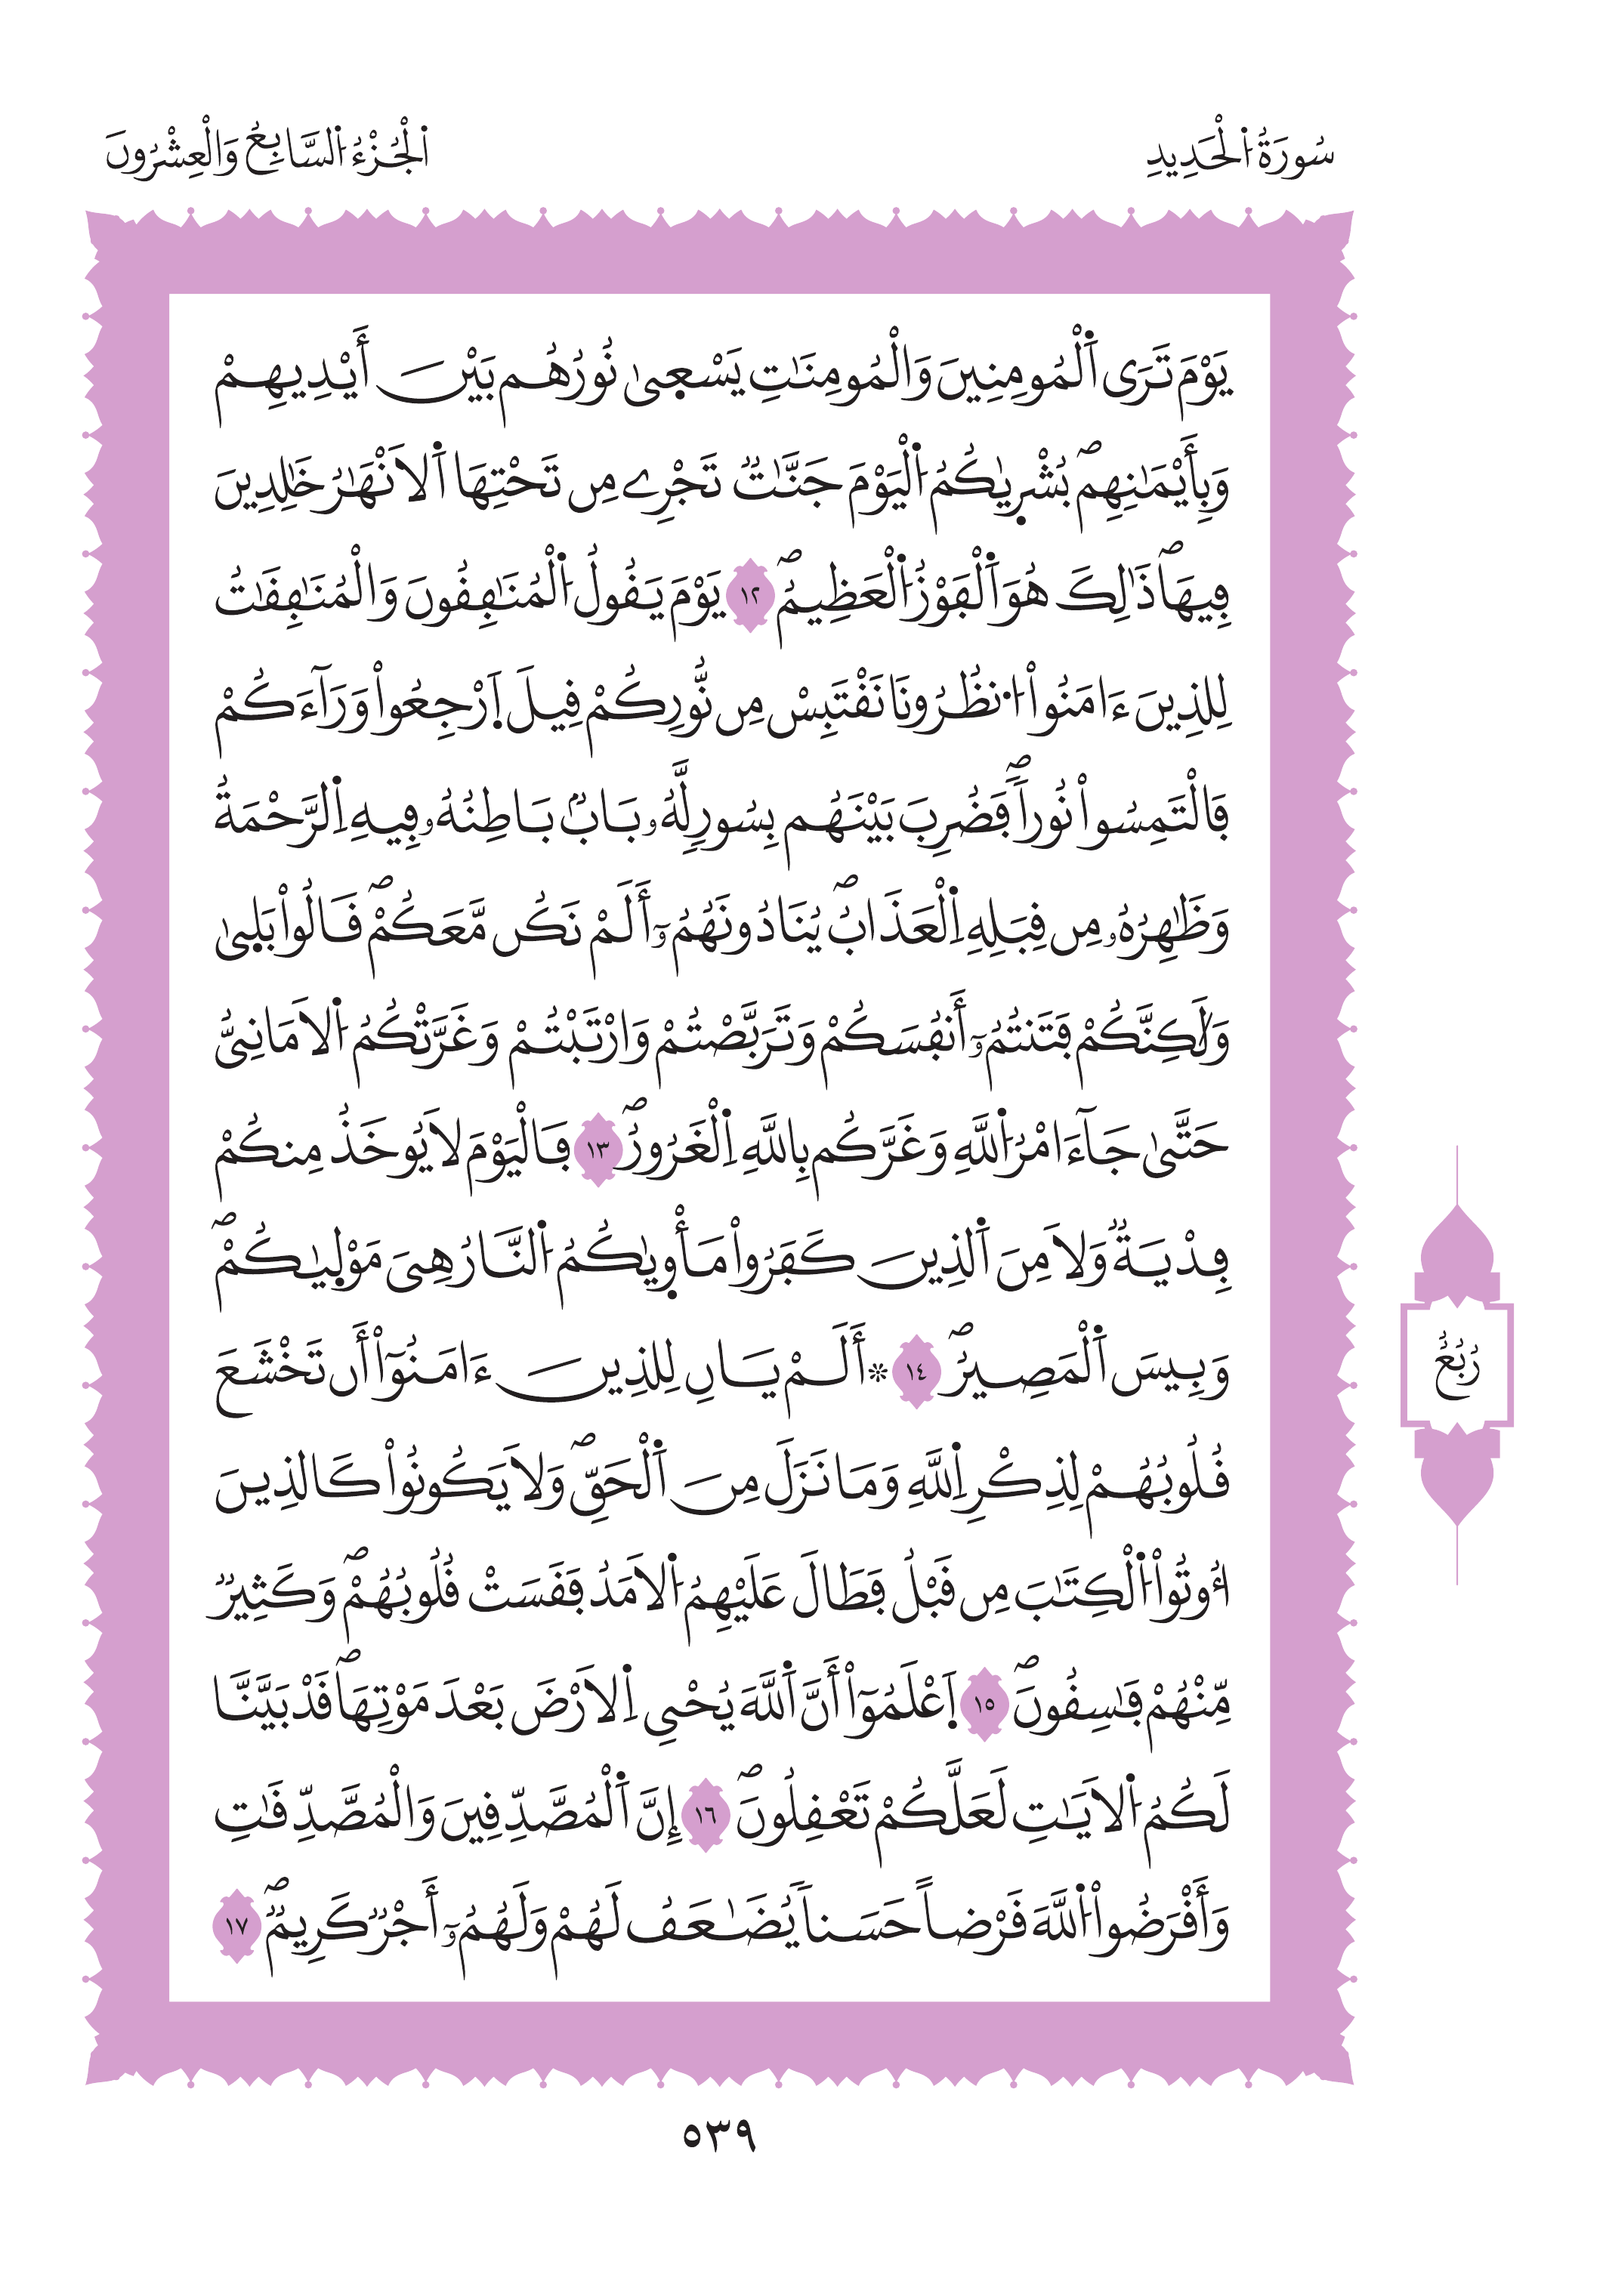 سُورَةُ اُ۬لْحَدِيدِ
اَ۬لْجُزْءُ اُ۬لسَّابِعُ وَالْعِشْرُونَ
يَوْمَ تَرَى اَ۬لْمُومِنِينَ وَالْمُومِنَٰتِ يَسْع۪يٰ نُورُهُم بَيْنَ أَيْدِيهِمْ
وَبِأَيْمَٰنِهِمۖ بُشْر۪يٰكُمُ اُ۬لْيَوْمَ جَنَّٰتٞ تَجْرِے مِن تَحْتِهَا اَ۬لَانْهَٰرُ خَٰلِدِينَ
فِيهَاۖ ذَٰلِكَ هُوَ اَ۬لْفَوْزُ اُ۬لْعَظِيمُۖ ١٢ يَوْمَ يَقُولُ اُ۬لْمُنَٰفِقُونَ وَالْمُنَٰفِقَٰتُ
لِلذِينَ ءَامَنُواْ اُ۟نظُرُونَا نَقْتَبِسْ مِن نُّورِكُمْ قِيلَ اَ۪رْجِعُواْ وَرَآءَكُمْ
فَالْتَمِسُواْ نُوراٗۖ فَضُرِبَ بَيْنَهُم بِسُورٖ لَّهُۥ بَابُۢ بَاطِنُهُۥ فِيهِ اِ۬لرَّحْمَةُ
وَظَٰهِرُهُۥ مِن قِبَلِهِ اِ۬لْعَذَابُۖ يُنَادُونَهُمُۥٓ أَلَمْ نَكُن مَّعَكُمْۖ قَالُواْ بَل۪يٰ
وَلَٰكِنَّكُمْ فَتَنتُمُۥٓ أَنفُسَكُمْ وَتَرَبَّصْتُمْ وَارْتَبْتُمْ وَغَرَّتْكُمُ اُ۬لَامَانِيُّ
حَتَّىٰ جَآءَ امْرُ اُ۬للَّهِ وَغَرَّكُم بِاللَّهِ اِ۬لْغَرُورُۖ ١٣ فَالْيَوْمَ لَا يُوخَذُ مِنكُمْ
فِدْيَةٞ وَلَا مِنَ اَ۬لذِينَ كَفَرُواْ مَأْو۪يٰكُمُ اُ۬لنَّارُ هِيَ مَوْل۪يٰكُمْۖ
وَبِيسَ اَ۬لْمَصِيرُۖ ١٤ ۞ أَلَمْ يَانِ لِلذِينَ ءَامَنُوٓاْ أَن تَخْشَعَ
قُلُوبُهُمْ لِذِكْرِ اِ۬للَّهِ وَمَا نَزَلَ مِنَ اَ۬لْحَقِّۖ وَلَا يَكُونُواْ كَالذِينَ
أُوتُواْ اُ۬لْكِتَٰبَ مِن قَبْلُ فَطَالَ عَلَيْهِمُ اُ۬لَامَدُ فَقَسَتْ قُلُوبُهُمْۖ وَكَثِيرٞ
مِّنْهُمْ فَٰسِقُونَۖ ١٥ اَ۪عْلَمُوٓاْ أَنَّ اَ۬للَّهَ يُحْيِ اِ۬لَارْضَ بَعْدَ مَوْتِهَاۖ قَدْ بَيَّنَّا
لَكُمُ اُ۬لَايَٰتِ لَعَلَّكُمْ تَعْقِلُونَۖ ١٦ إِنَّ اَ۬لْمُصَّدِّقِينَ وَالْمُصَّدِّقَٰتِ
وَأَقْرَضُواْ اُ۬للَّهَ قَرْضاً حَسَناٗ يُضَٰعَفُ لَهُمْ وَلَهُمُۥٓ أَجْرٞ كَرِيمٞۖ ١٧
رُبُعُ
٥٣٩